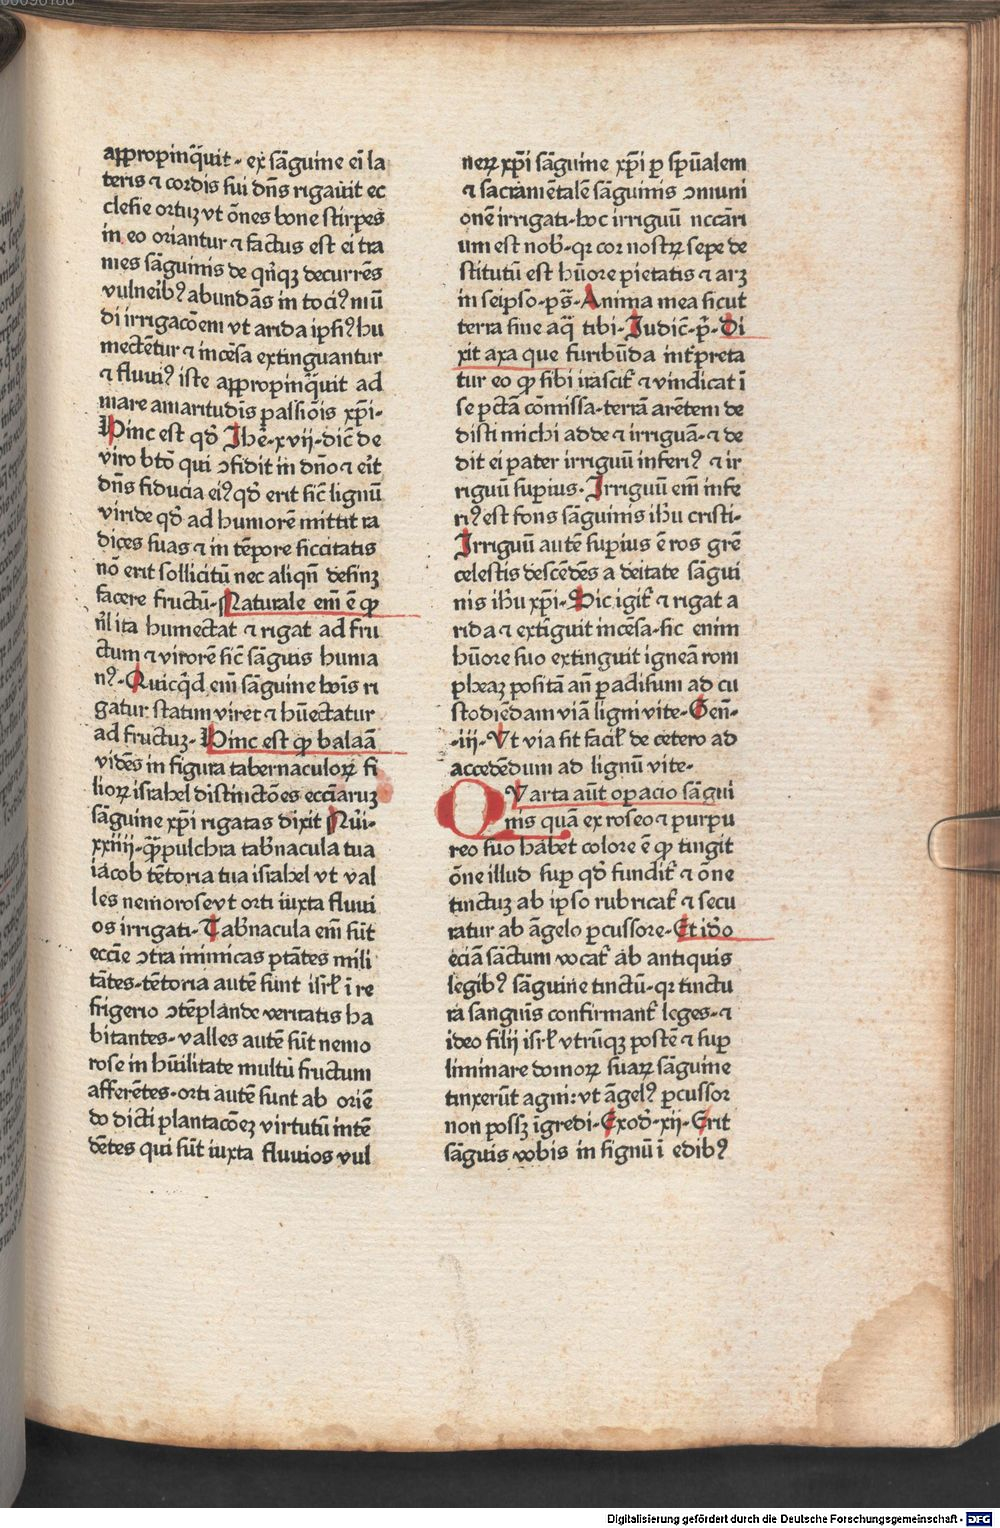 appropinq̃uit· ex sãguine ei la
teris ⁊ cordis sui dñs rigauit ec
clesie ortuʒ vt õnes bone stirpes
in eo oriantur ⁊ factus est ei tra
mes sãguinis de qñqʒ decurrẽs
vulneribꝰ abundãs in tociꝰ mũ
di irrigacõem vt arida ipsiꝰ hu
mectẽtur ⁊ incẽsa extinguantur
⁊ fluuiꝰ iste appropinq̃uit ad
mare amaritudis passiõis xp̃i·
Hinc est qđ Ihẽ·xvij·dic̃ de
viro bt̃o qui ↄfidit in dño ⁊ eĩt
dñs fiducia eiꝰ qđ erit sic̃ lignũ
viride qđ ad humorẽ mittit ra
dices suas ⁊ in tẽpore siccitatis
nõ erit sollicitũ nec aliqñ desinʒ
facere fructũ· Naturale em̃ ẽ ꝙ
ñl ita humectat ⁊ rigat ad fru
ctum ⁊ virorẽ sic̃ sãguis huma
nꝰ· Quicq̃d em̃ sãguine hoĩs ri
gatur statim viret ⁊ hũectatur
ad fructuʒ· Hinc est ꝙ balaã
vidẽs in figura tabernaculoꝝ fi
lioꝝ israhel distinctões ecc̃iaruʒ
sãguine xp̃i rigatas dixit Nũi·
xxiiij·q̃ꝫ pulchra tab̃nacula tua
iacob tẽtoria tua israhel vt val
les nemorose vt orti iuxta fluui
os irrigati· Tab̃nacula em̃ sũt
ecc̃ie ↄtra inimicas ptãtes mili
tãtes·tẽtoria autẽ sunt isrl̃ ĩ re
frigerio ↄtẽplande veritatis ha
bitantes·valles autẽ sũt nemo
rose in hũilitate multũ fructum
afferẽtes·orti autẽ sunt ab oriẽ
do dicti plantacõeʒ virtutũ intẽ
dẽtes qui sũt iuxta fluuios vul
neꝝ xp̃i sãguine xp̃i ꝑ spũalem
⁊ sacramẽtalẽ sãguinis ↄmuni
onẽ irrigati·hoc irriguũ nccãri
um est nob̃·qꝛ cor nostꝝ sepe de
stitutũ est hũore pietatis ⁊ arʒ
in seipso·ps̃· Anima mea sicut
terra sine aq̃ tibi· Iudic̃·p̃· Di
xit axa que furibũda int̃preta
tur eo ꝙ sibi irascit̃ ⁊ vindicat ĩ
se pctã cõmissa·terrã arẽtem de
disti michi adde ⁊ irriguã·⁊ de
dit ei pater irriguũ inferiꝰ ⁊ ir
riguũ superius· Irriguũ em̃ infe
riꝰ est fons sãguinis ihũ cristi·
Irriguũ autẽ superius ẽ ros gr̃e
celestis descẽdẽs a deitate sãgui
nis ihũ xp̃i· Hic igit̃ ⁊ rigat a
rida ⁊ extinguit incẽsa·sic enim
hũore suo extinguit igneã rom
pheaʒ positã añ padisum ad cu
stodiẽdam viã ligni vite· Geñ·
·iij· Vt via sit facil̃ de cetero ad
accedẽdum ad lignũ vite·
QVarta aũt oꝑacio sãgui
nis quã ex roseo ⁊ purpu
reo suo habet colore ẽ ꝙ tingit
õne illud suꝑ qđ fundit̃ ⁊ õne
tinctuʒ ab ipso rubricat̃ ⁊ secu
ratur ab ãgelo ꝑcussore· Et iđo
eciã sãctum vocat̃ ab antiquis
legibꝰ sãguine tinctũ·qꝛ tinctu
ra sanguĩs confirmant̃ leges·⁊
ideo filij isrl̃ vtrũqʒ postẽ ⁊ suꝑ
liminare domoꝝ suaꝝ sãguine
tinxerũt agni: vt ãgelꝰ ꝑcussor
non possʒ ĩgredi· Exođ·xij· Erit
sãguis vobis in signũ ĩ edibꝰ
Digitalisierung gefördert durch die Deutsche Forschungsgemeinschaft - DFG